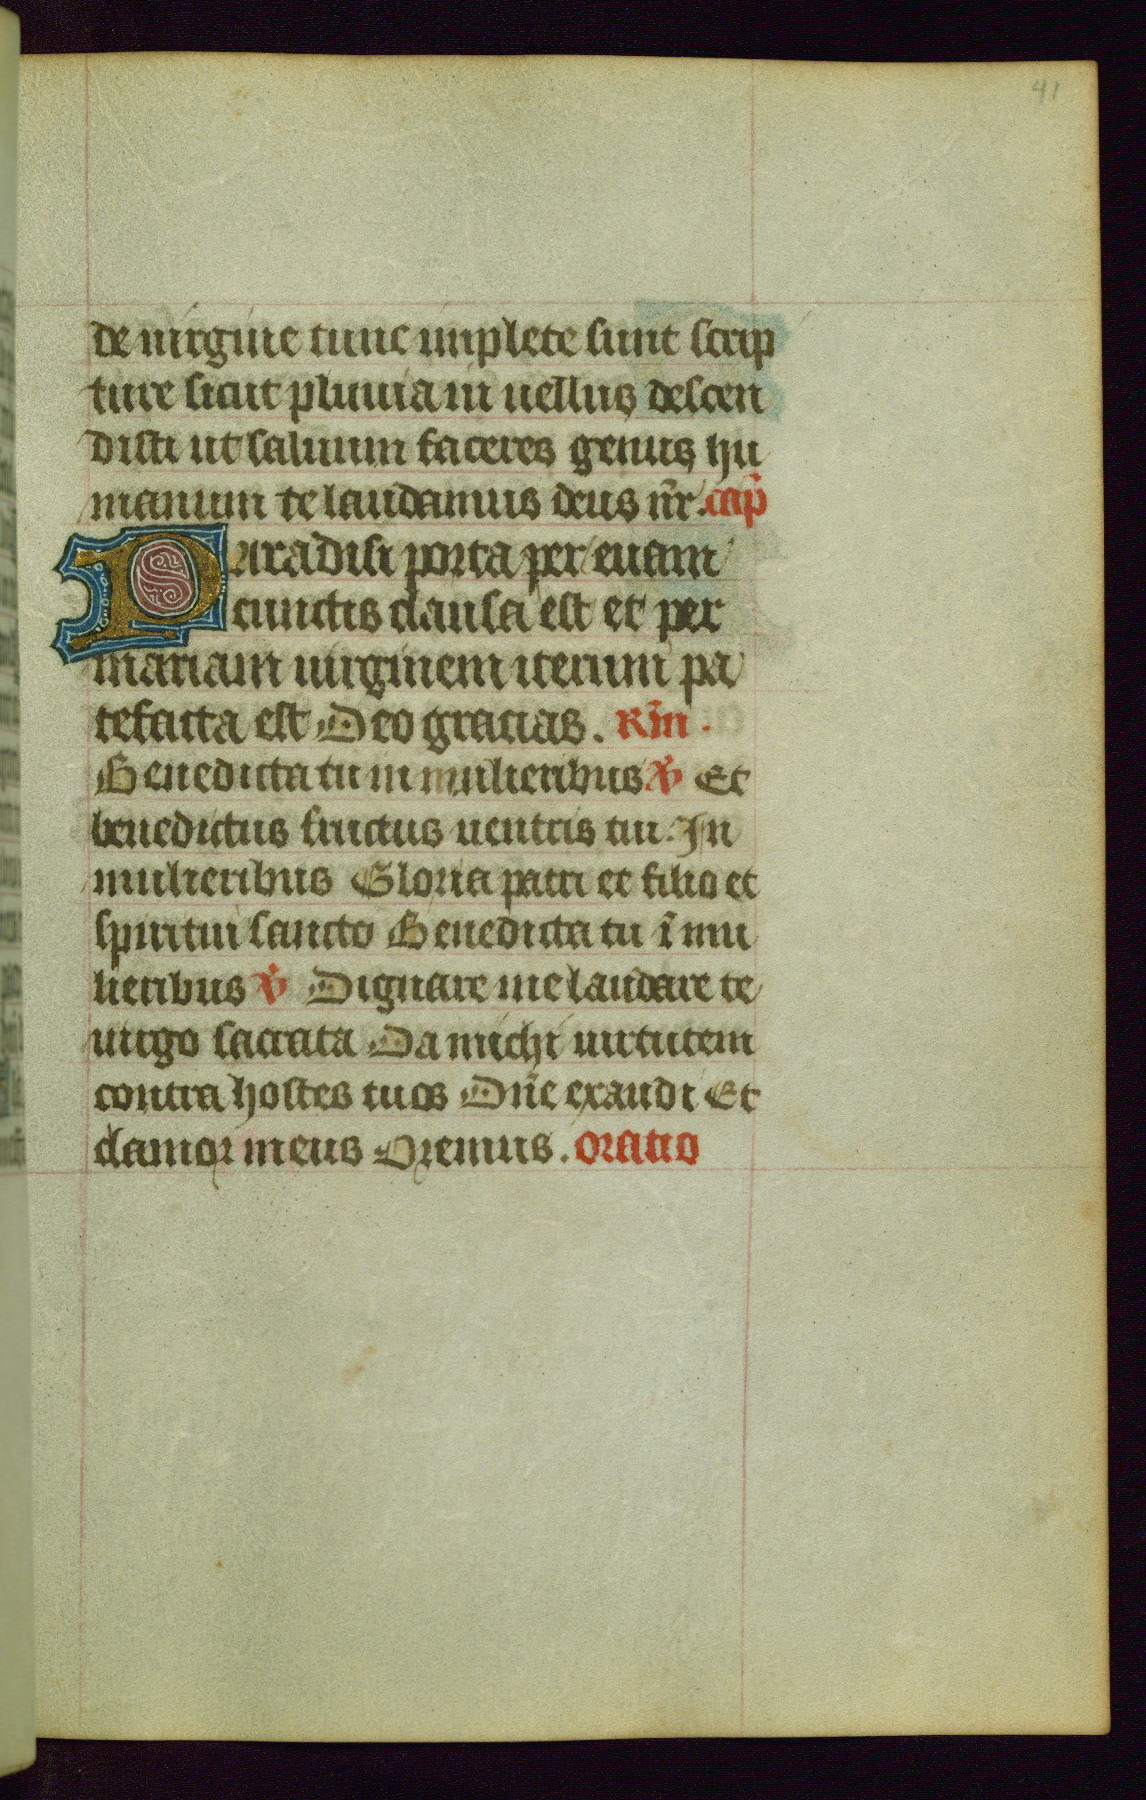 41
de uirgine tunc implete sunt scrip
ture sicut pluuia in uellus descen
disti ut saluum faceres genus hu
manum te laudamus deus nr̄. cap̄
Paradisi porta per euam
cunctis clausa est et per
mariam uirginem iterum pa
tefacta est Deo gracias. Rm̄.
Benedicta tu in mulieribus ỹ Et
benedictus fructus uentris tui. In
mulieribus Gloria patri et filio et
spiritui sancto Benedicta tu ī mu
lieribus ỹ Dignare me laudare te
uirgo sacrata Da michi uirtutem
contra hostes tuos Dn̄e exaudi Et
clamor meus Oremus. oratio